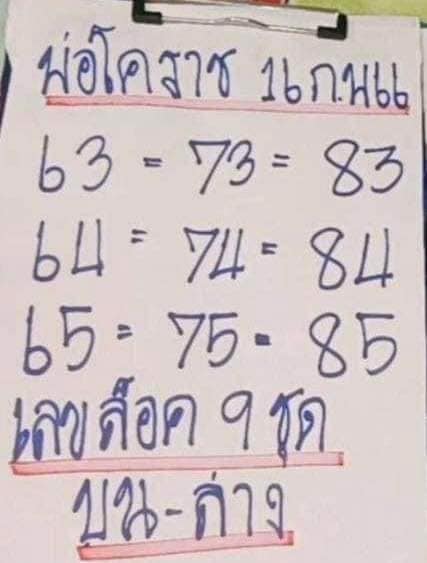 พ่อโคราช 16 ก.พ66
63 = 73 = 83
64 = 74 = 84
65 = 75 = 85
เลขล็อค 9 ชุด
บน-ล่าง